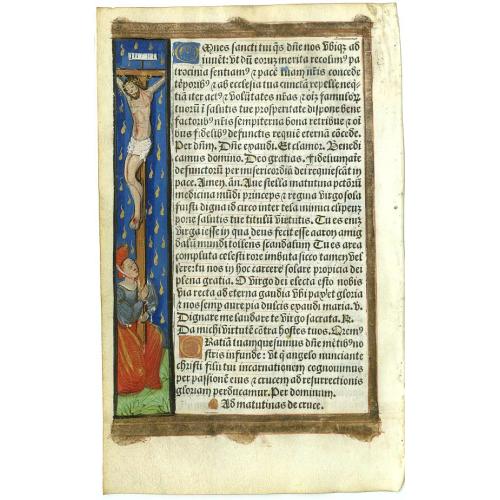 Omnes sancti tui q̄s dn̄e nos vbiqȝ ad
iuuēt: vt dū eorūȝ merita recolimꝰ pa
trocinia sentiamꝰ ⁊ pacē tuam nr̄is concede
tēporibꝰ ⁊ ab ecclesia tua cunctā repelle neq̄
tiā iter actꝰ ⁊ volūtates nr̄as ⁊ oīȝ famuloꝝ
tuorū ī salutis tue prosperitate dispone bene
factoribꝰ nr̄is sempiterna bona retribue ⁊ oī
bus fidelibꝰ defunctis requiē eternā cōcede.
Per dn̄m. Dn̄e exaudi. Et clamor. Benedi
camus domino. Deo gratias. Fideliūm aīe
defunctorū per misericordiā dei requiescāt in
pace. Amen. añ. Aue stella matutina pctōrū
medicina mūdi princeps ⁊ regina virgo sola
fuisti digna id circo inter tela inimici clipeuȝ
pone salutis tue titulū virtutis. Tu es eniȝ
virga iesse in qua deus fecit esse aaron amig
dalū mundi tollens scandalum Tu es area
compluta celesti rore imbuta sicco tamen vel
lere: tu nos in hoc carcere solare propicia dei
plena gratia. O virgo dei electa esto nobis
via recta ad eterna gaudia vbi pax ⁊ gloria
⁊ nos semp aure pia dulcis exaudi maria. v.
Dignare me laudare te virgo sacrata. R.
Da michi virtutē cōtra hostes tuos. Oremꝰ
Gratiā tuam quesumus dn̄e mētibꝰ no
stris infunde: vt q̇ angelo nunciante
christi filii tui incarnationem cognouimus
per passionē eius ⁊ crucem ad resurrectionis
gloriam perducamur. Per dominum.
Ad matutinas de cruce.